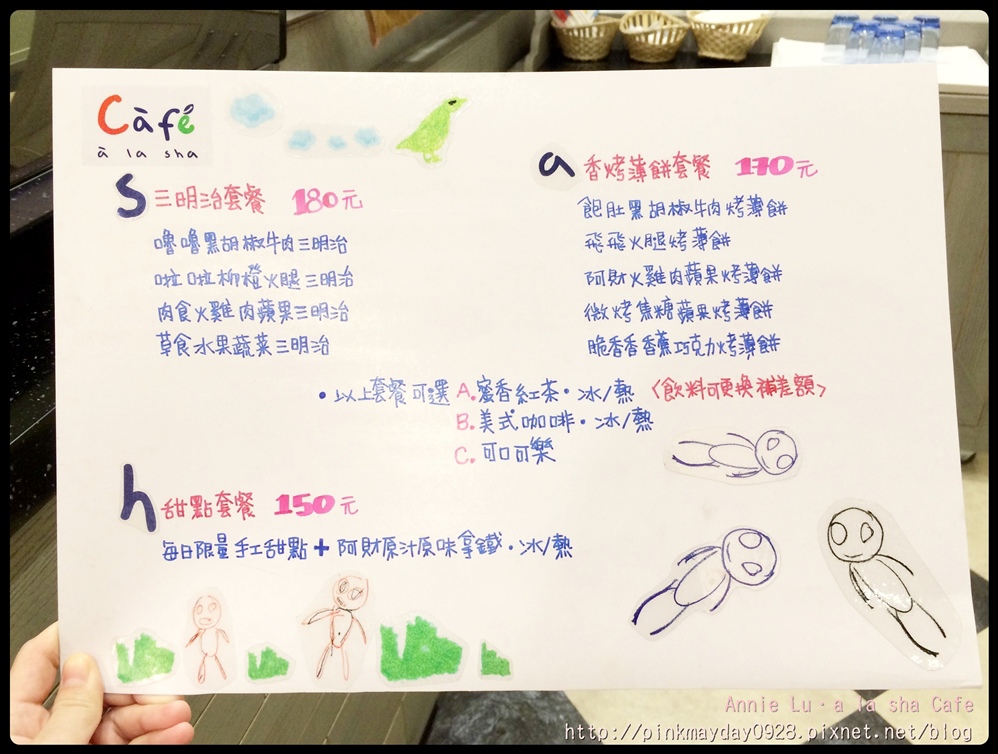 Càfé
à la sha
S 三明治套餐 180元
嚕嚕黑胡椒牛肉三明治
啦啦柳橙火腿三明治
肉食火雞肉蘋果三明治
草食水果蔬菜三明治
a 香烤薄餅套餐 170元
飽肚黑胡椒牛肉烤薄餅
飛飛火腿烤薄餅
阿財火雞肉蘋果烤薄餅
微烤焦糖蘋果烤薄餅
脆香香香蕉巧克力烤薄餅
•以上套餐可選 A.蜜香紅茶·冰/熱 〈飲料可更換補差額〉
B.美式咖啡·冰/熱
C.可口可樂
h 甜點套餐 150元
每日限量手工甜點+阿財原汁原味拿鐵·冰/熱
Annie Lu·a la sha Cafe
http://pinkmayday0928.pixnet.net/blog